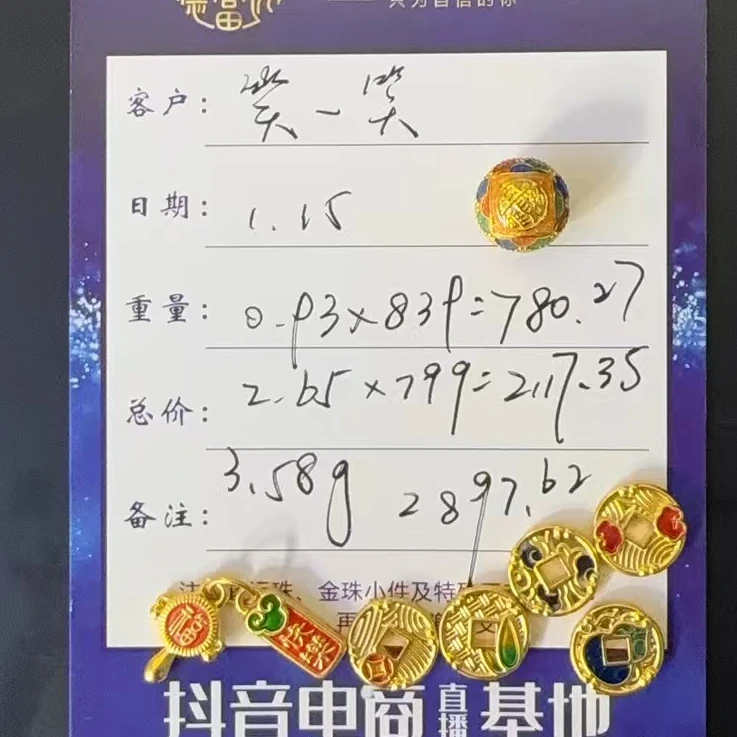 只为自信的你
客户: 笑一笑
日期: 1.15
重量: 0.93×839=780.27
总价: 2.65×799=2117.35
备注: 3.58g 2897.62
珠、金珠小件及特殊
再
快樂
抖音电商直播基地